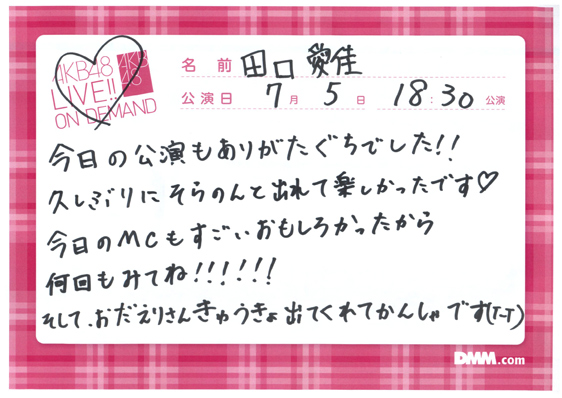 AKB48
LIVE!!
ON DEMAND
AKB
48
名前 田口 愛佳
公演日 7月 5日 18:30 公演
今日の公演もありがたぐちでした!!
久しぶりにそらのんと出れて楽しかったです♡
今日のMCもすごいおもしろかったから
何回もみてね!!!!!!
そして、おだえりさんきゅうきょ出てくれてかんしゃです(T-T)
DMM.com